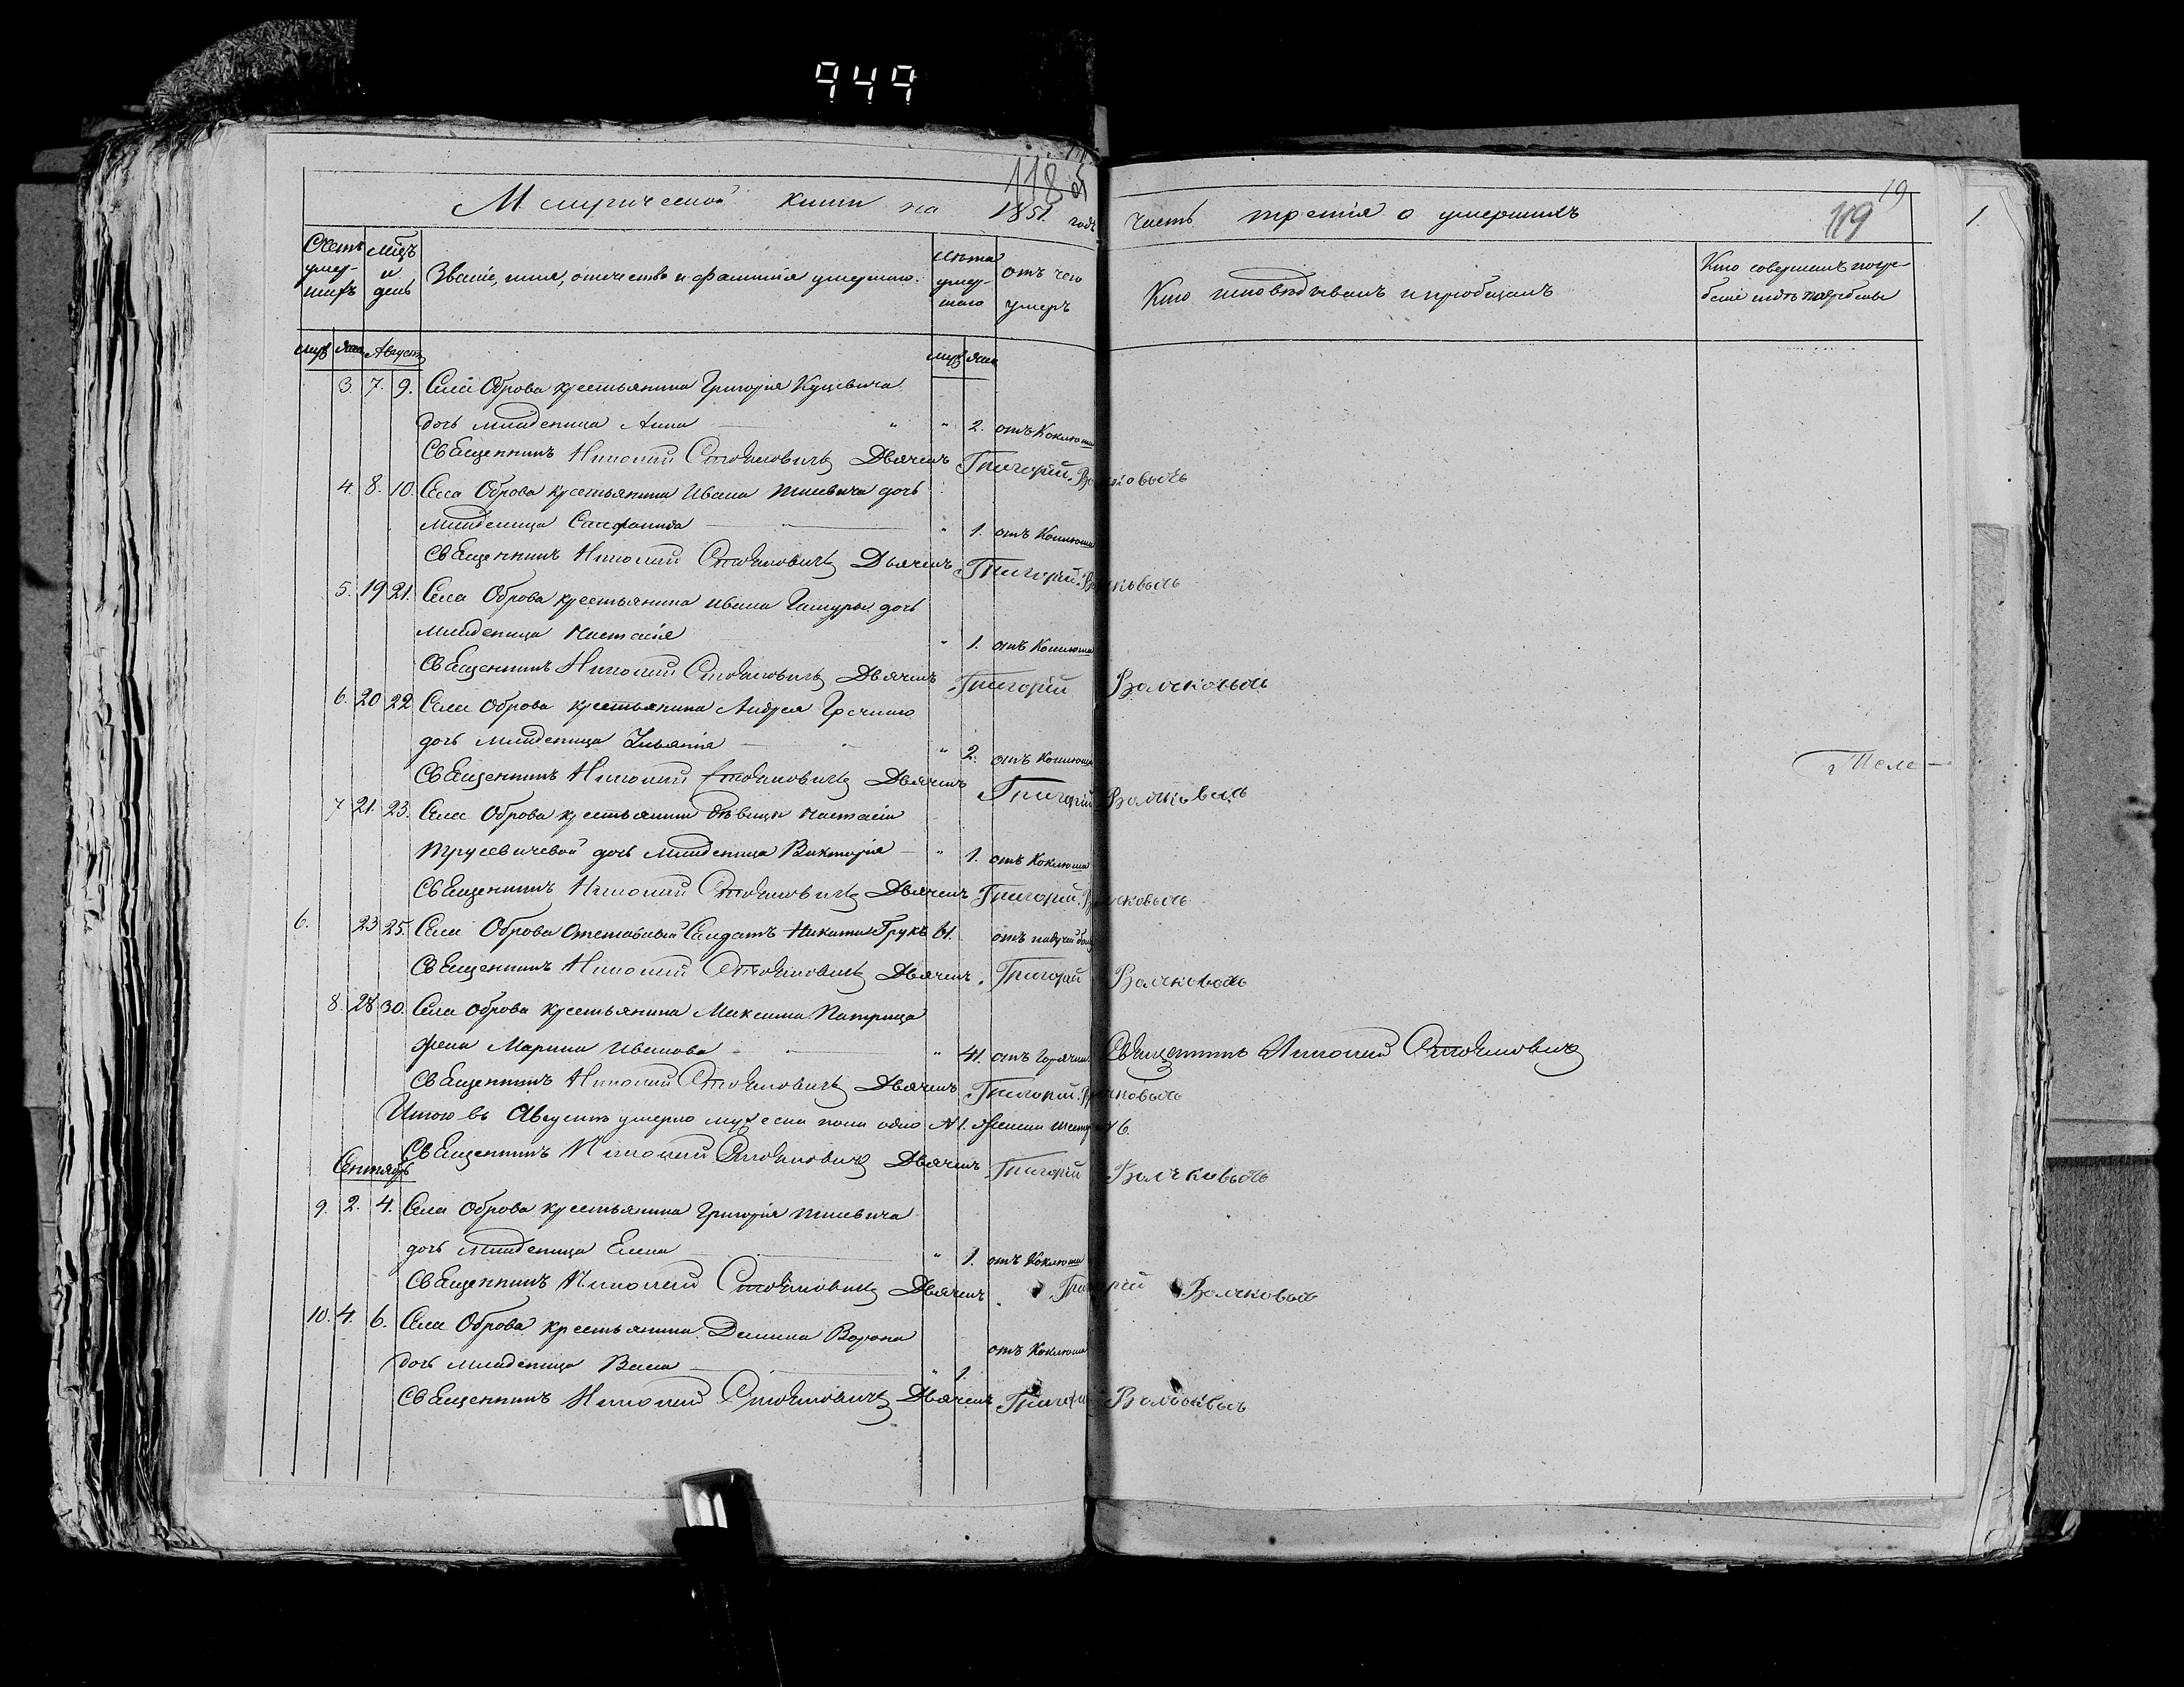 949
118
Метрической книги на 1851. годъ часть третія о умершихъ
119
19
1.
Счетъ умершихъ
Мцъ и день
Званіе, имя, отчество и фамилія умершаго.
Лѣта умершаго
отъ чего умеръ
Кто исповѣдывалъ и пріобщалъ
Кто совершалъ погребеніе и гдѣ погребены
муж жен Августъ муж жен
3. 7. 9. Села Оброва крестьянина Григорія Куцевича
дочь младеница Анна " 2. отъ Коклюша
Священникъ Николай Стоянович Дьячекъ Григорій
4. 8. 10. Села Оброва крестьянина Ивана дочь
младеница " 1. отъ Коклюша
Священникъ Николай Стоянович Дьячекъ Григорій
5. 19 21. Села Оброва крестьянина Ивана дочь
младеница Настасія " 1. отъ Коклюша
Священникъ Николай Стоянович Дьячекъ Григорій
6. 20 22 Села Оброва крестьянина Андрея
дочь младеница " 2. отъ Коклюша
Священникъ Николай Стоянович Дьячекъ Григорій
7 21. 23. Села Оброва крестьянки дѣвицы Настасіи
Трусевичевой дочь младеница Викторія " 1. отъ Коклюша
Священникъ Николай Стоянович Дьячекъ Григорій
6. 23 25. Села Оброва Отставный Салдатъ Никита Грукъ 61. отъ
Священникъ Николай Стоянович Дьячекъ Григорій
8. 28 30. Села Оброва крестьянина Максима Патрица
жена Марина Иванова " 41. отъ Горячки Священникъ Николай Стоянович
Священникъ Николай Стоянович Дьячекъ Григорій
Итого въ Августѣ умерло мужеска пола одно N 1. женска шесть N 6.
Священникъ Николай Стоянович Дьячекъ Григорій
Сентябрь
9. 2. 4. Села Оброва крестьянина Григорія
дочь младеница Елена " 1. отъ Коклюша
Священникъ Николай Стоянович Дьячекъ Григорій
10. 4. 6. Села Оброва крестьянина Демяна Ворона
дочь младеница " 1. отъ Коклюша
Священникъ Николай Стоянович Дьячекъ Григорій